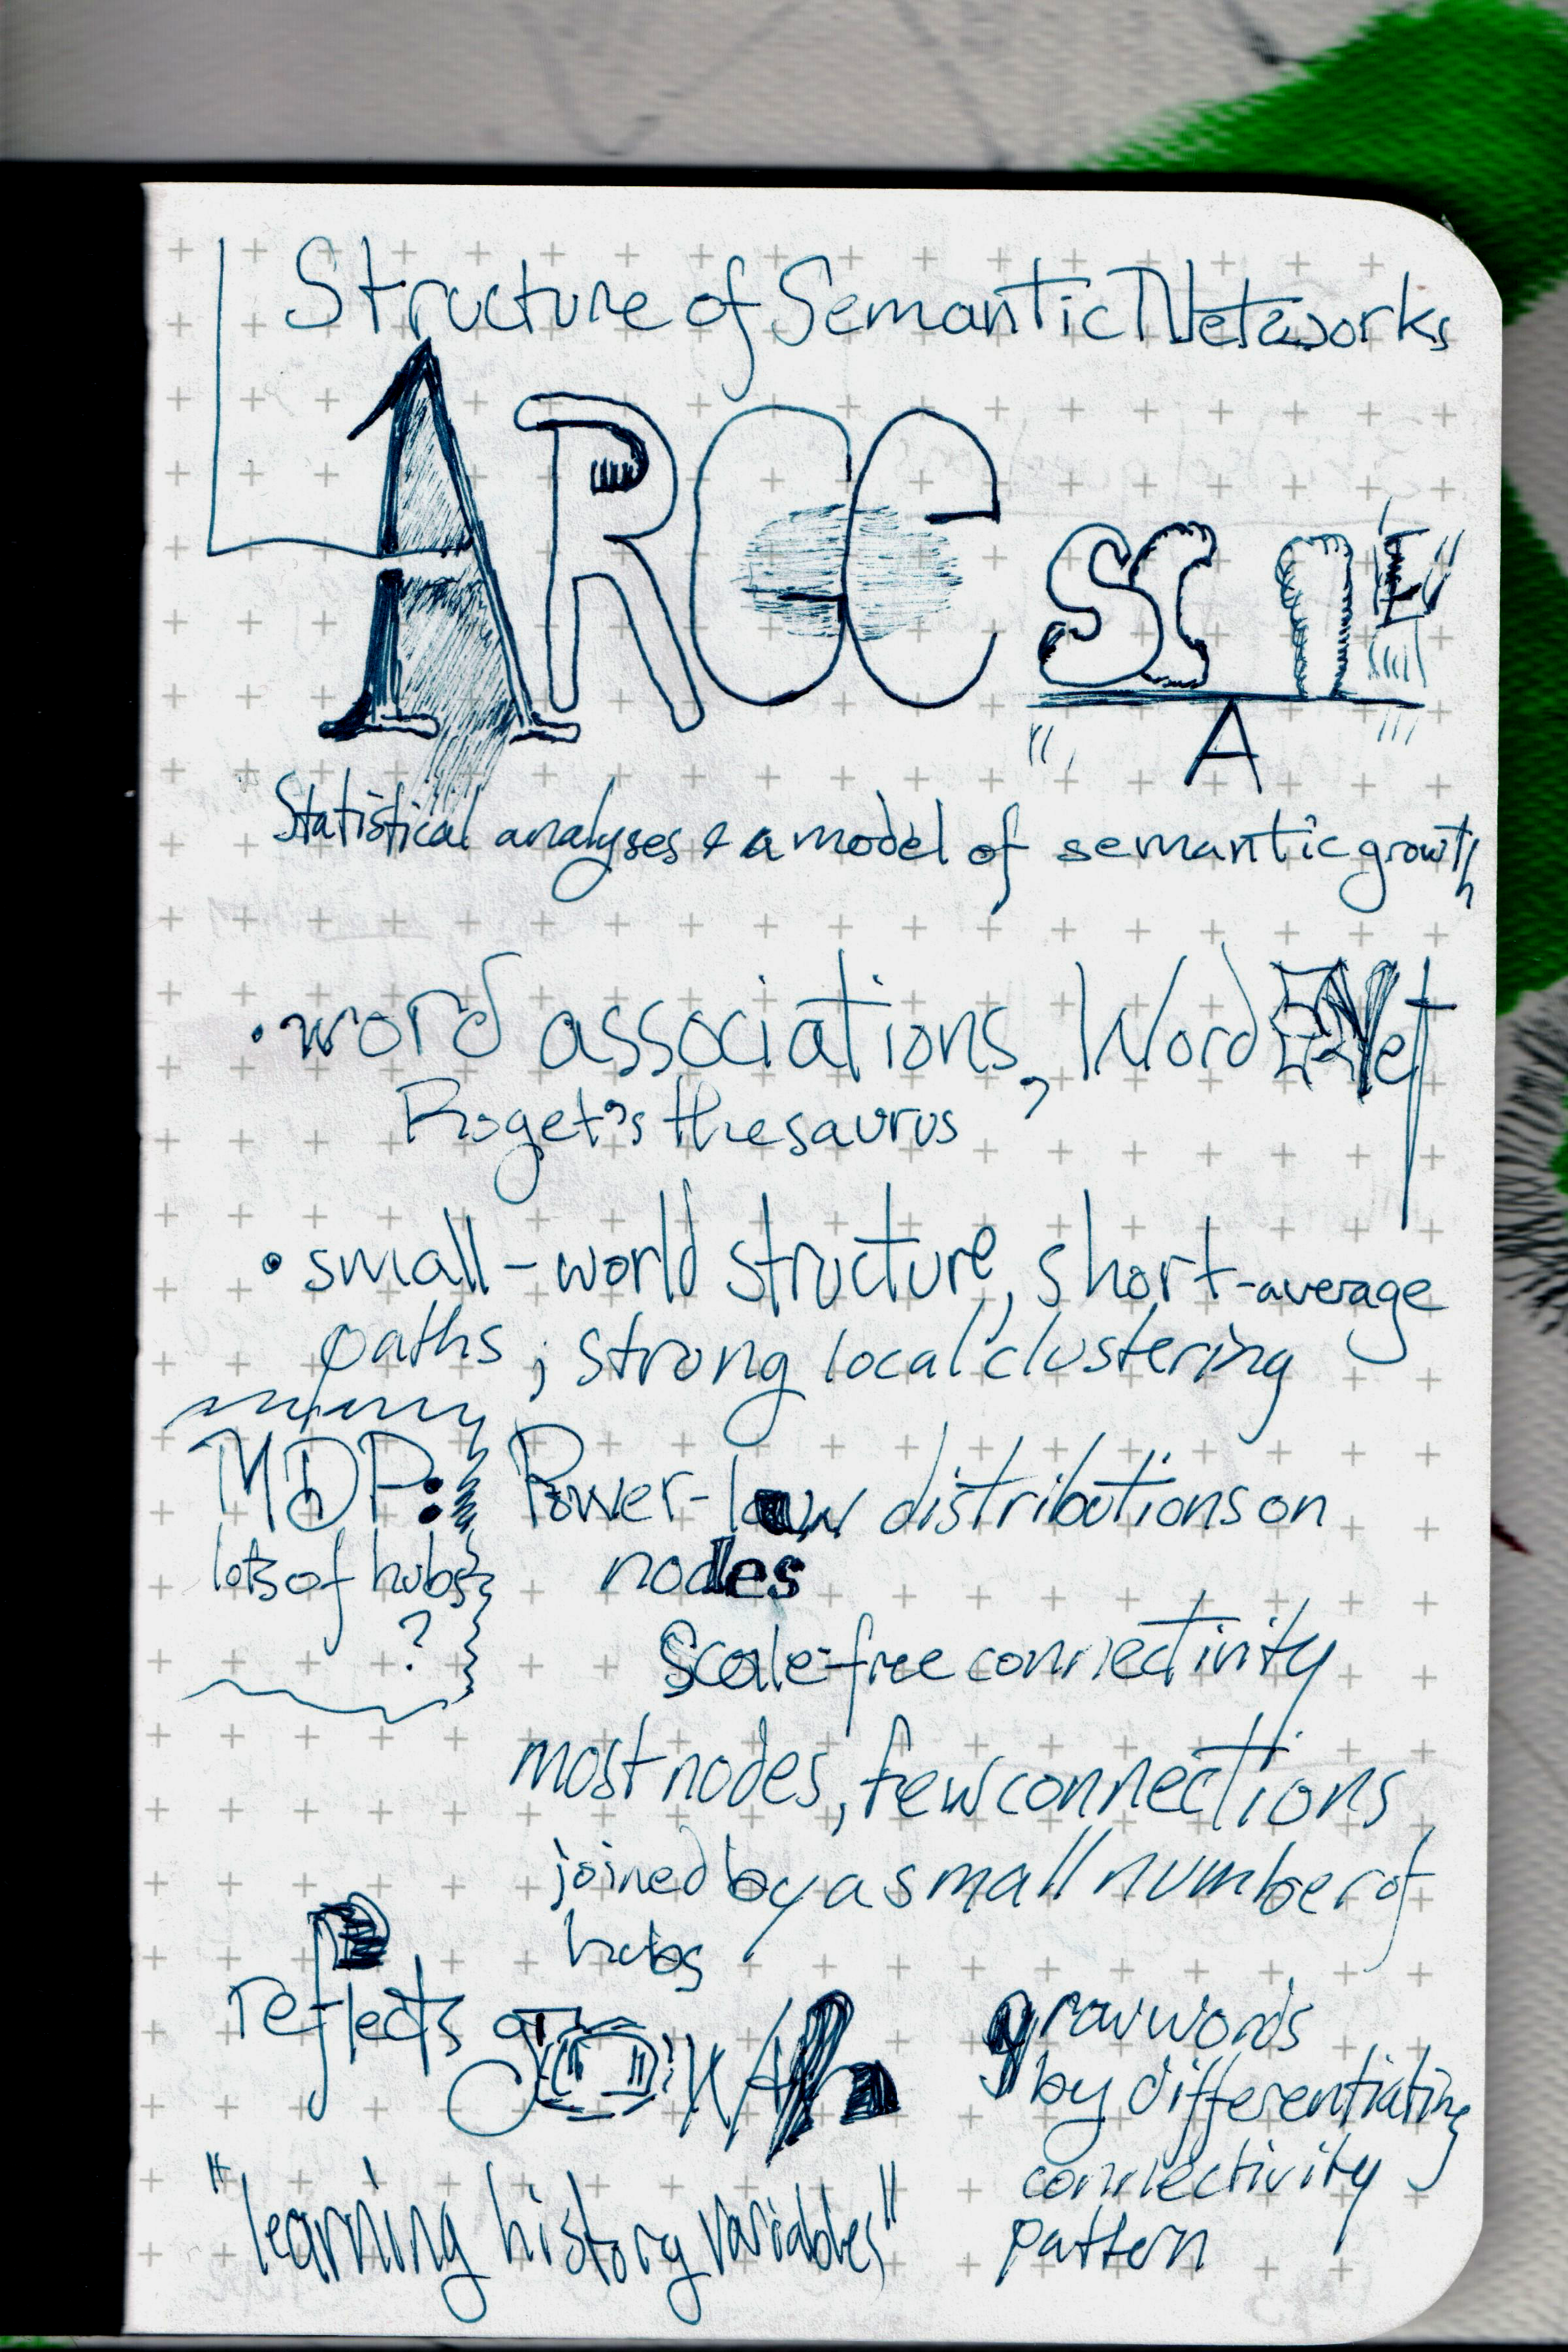 Structure of Semantic Networks
LARGE scale
Statistical analyses & a model of semantic growth
• word associations, WordNet
Roget's thesaurus
• small-world structure, short-average
paths; strong local clustering
MDP:
lots of hubs
?
Power-law distributions on
nodes
Scale-free connectivity
most nodes, few connections
joined by a small number of
hubs
reflects growth
"learning history variables"
grow words
by differentiating
connectivity
pattern